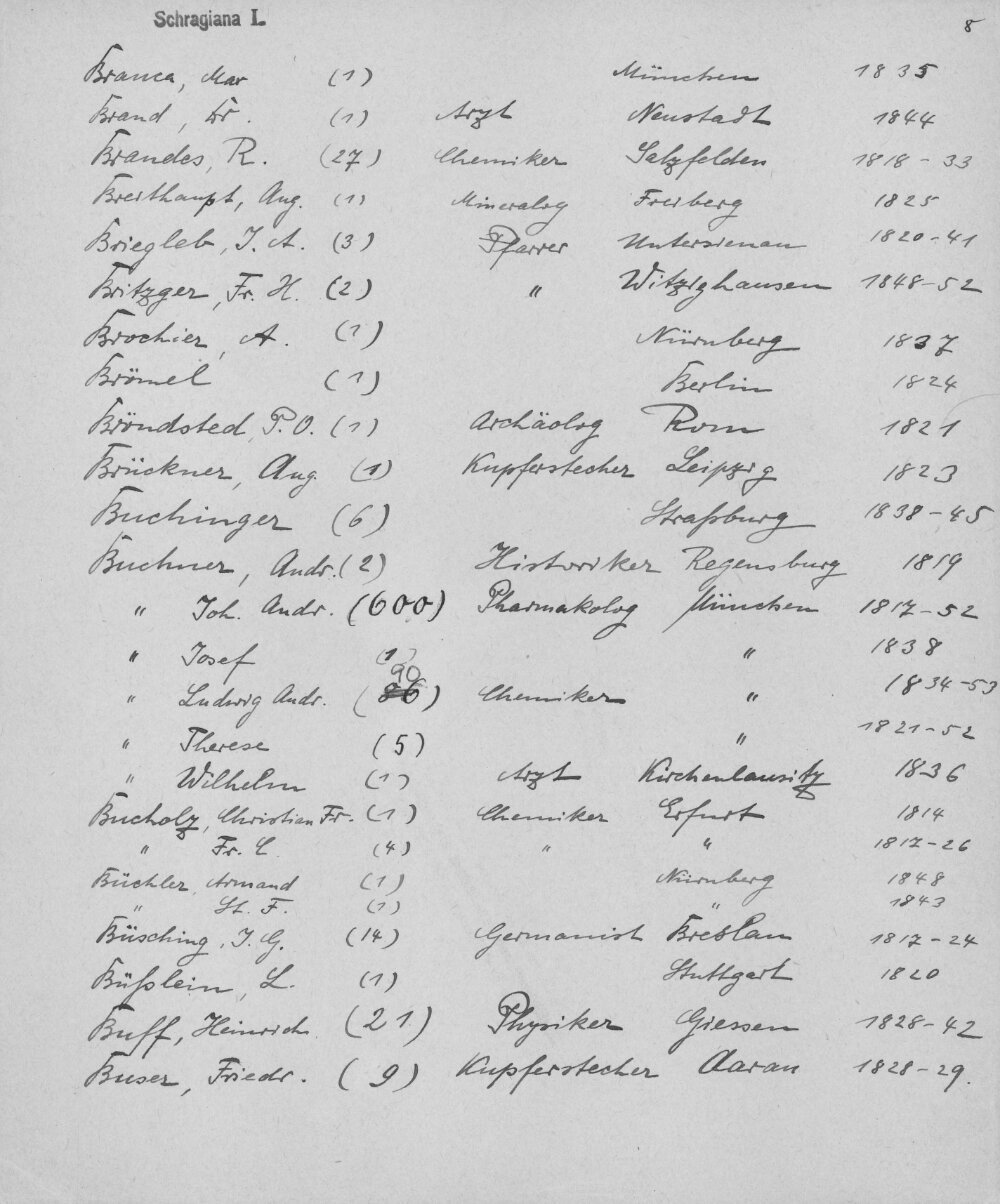 Schragiana I.
8
Branca, Mar (1) München 1835
Brand, Dr. (1) Arzt Neustadt 1844
Brandes, R. (27) Chemiker Salzfelden 1818-33
Breithaupt, Aug. (1) Mineralog Freiberg 1825
Briegleb, J. A. (3) Pfarrer 1820-41
Britzger, Fr. H. (2) " Witzighausen 1848-52
Brochier, A. (1) Nürnberg 1837
Brömel (1) Berlin 1824
Bröndsted, P.O. (1) Archäolog Rom 1821
Brückner, Aug. (1) Kupferstecher Leipzig 1823
Buchinger (6) Straßburg 1838-45
Buchner, Andr. (2) Historiker Regensburg 1819
" Joh. Andr. (600) Pharmakolog München 1817-52
" Josef (1) " 1838
" Ludwig Andr. (86) 90 Chemiker " 1834-53
" Therese (5) " 1821-52
" Wilhelm (1) Arzt Kirchenlausitz 1836
Bucholz, Christian Fr. (1) Chemiker Erfurt 1814
" Fr. C (4) " " 1817-26
Büchler, Armand (1) Nürnberg 1848
" St. F. (1) " 1843
Büsching, J. G. (14) Germanist Breslau 1817-24
Büßlein, L. (1) Stuttgart 1820
Buff, Heinrich (21) Physiker Giessen 1828-42
Buser, Friedr. (9) Kupferstecher Aarau 1828-29.